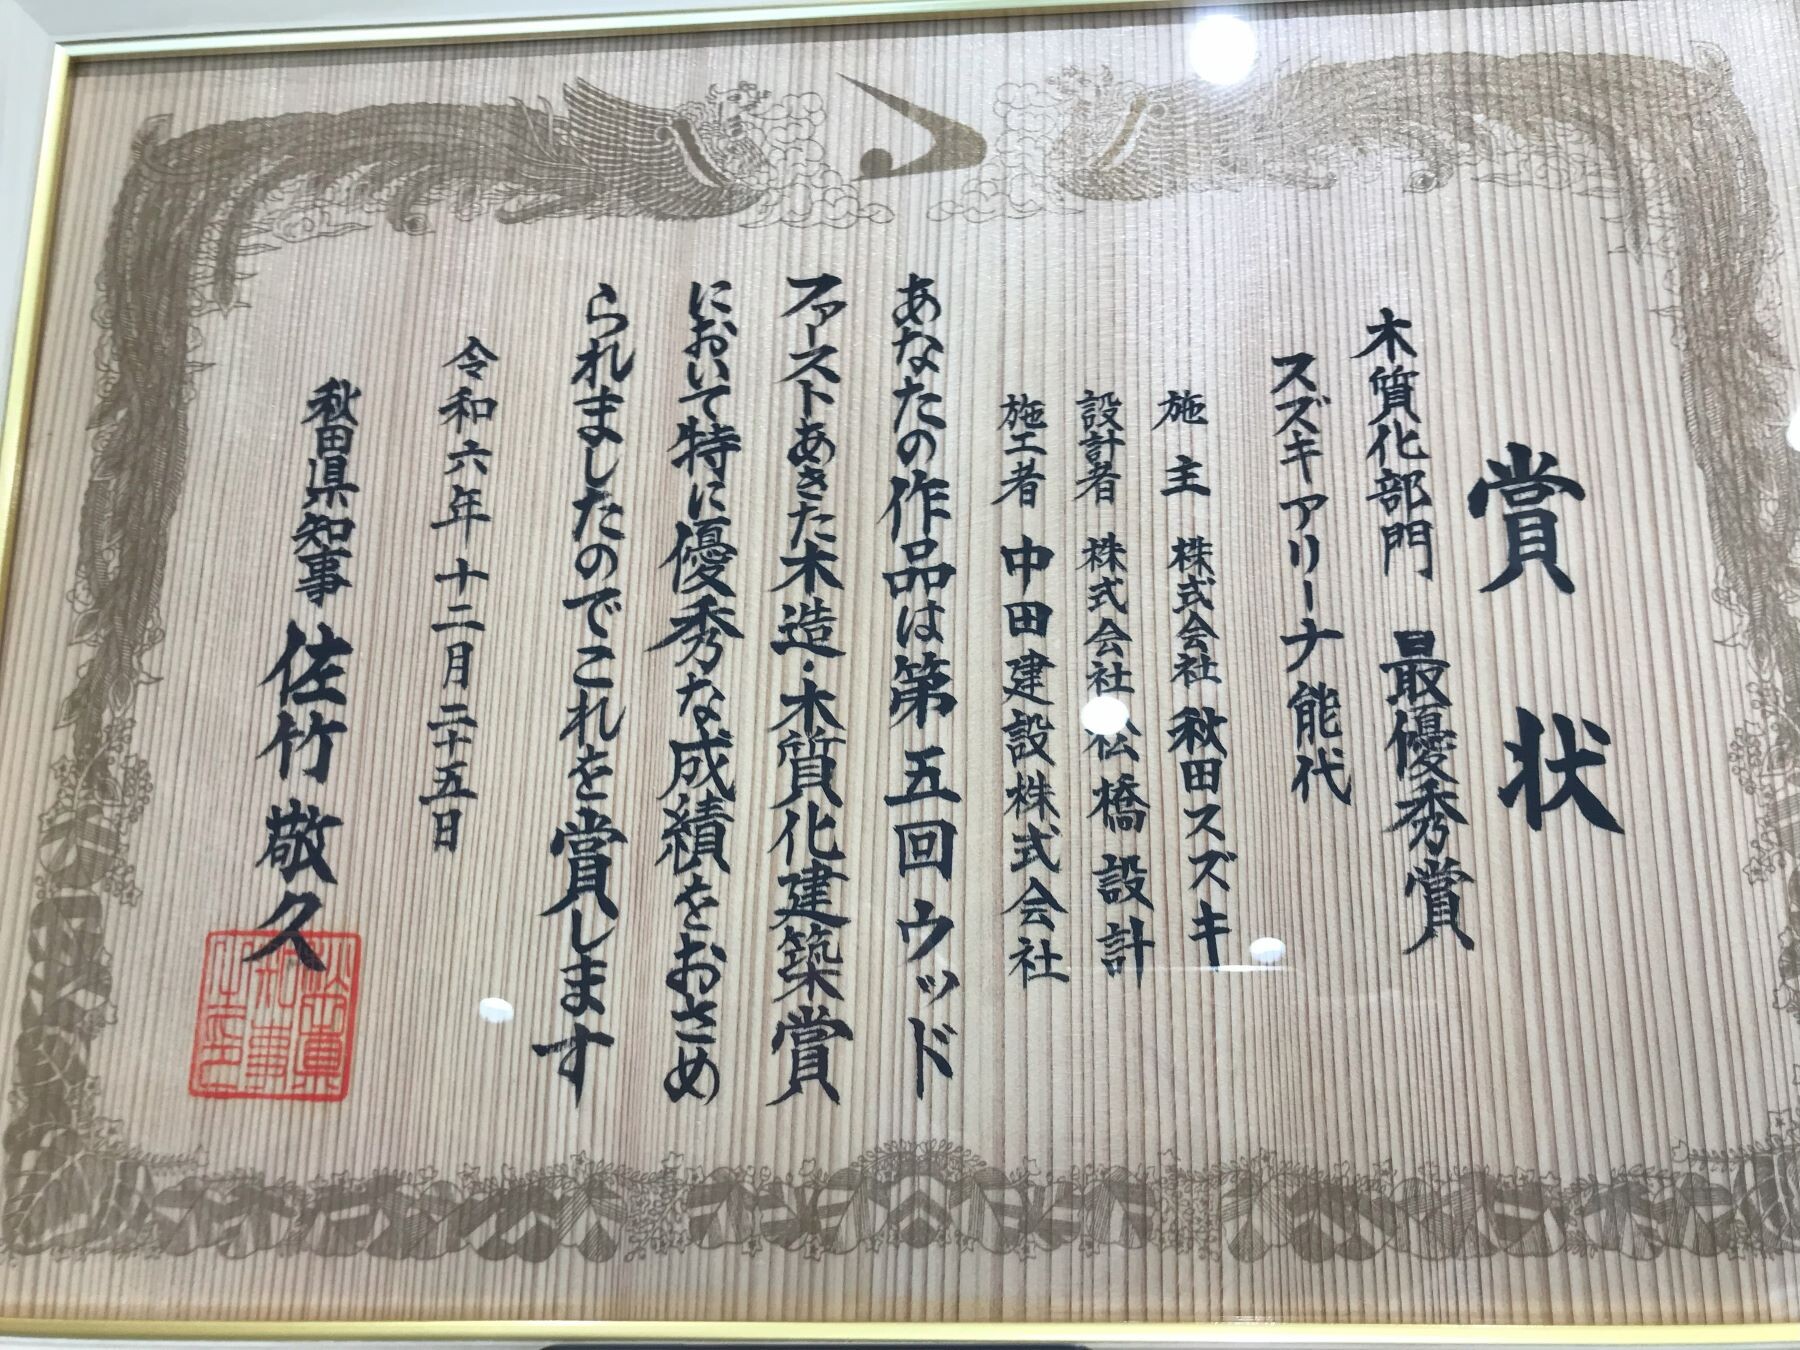 賞状
木質化部門 最優秀賞
スズキアリーナ能代
施主 株式会社秋田スズキ
設計者 株式会社松橋設計
施工者 中田建設株式会社
あなたの作品は第五回ウッド
ファーストあきた木造・木質化建築賞
において特に優秀な成績をおさめ
られましたのでこれを賞します
令和六年十二月二十五日
秋田県知事 佐竹敬久